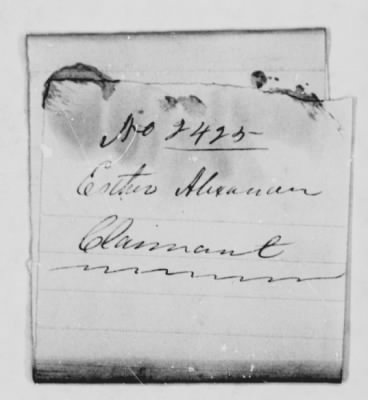 No 2425
Esther Alexander
Claimant